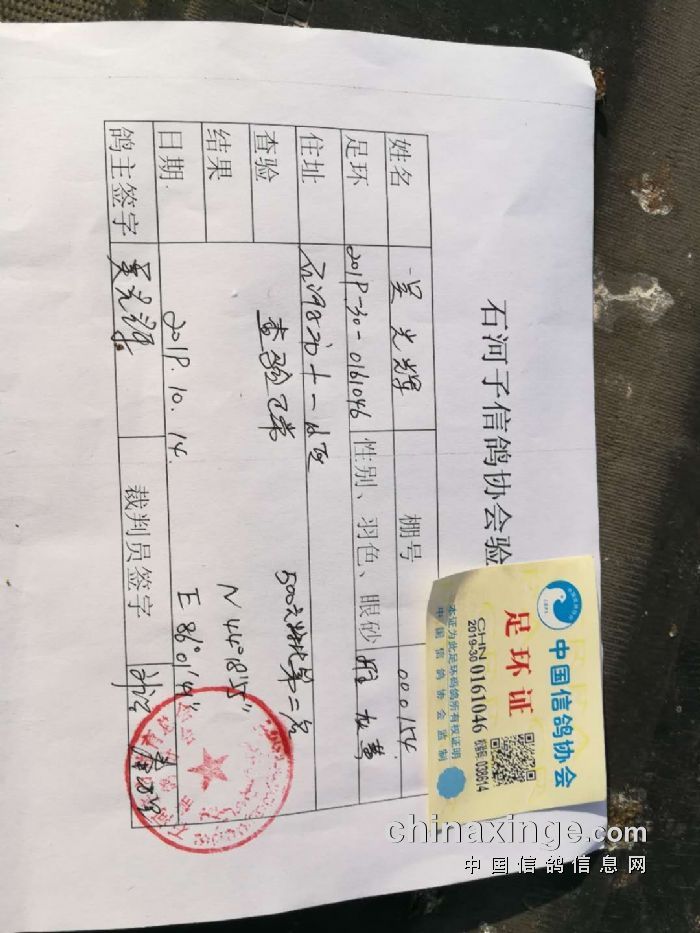 石河子信鸽协会验
姓名 吴光辉 棚号 000154
足环 2019-30-0161046 性别、羽色、眼砂 雄 灰 黄
住址 石河子市十一小区
查验 查验正常 500公里第二名
结果 N 44°8'5"
日期 2019.10.14. E 86°0'9"
鸽主签字 吴光辉 裁判员签字
中国信鸽协会
足环证
CHN 2019-30 0161046
038614
本证为此足环码鸽所有权证明
中国信鸽协会监制
chinaxinge.com
中国信鸽信息网